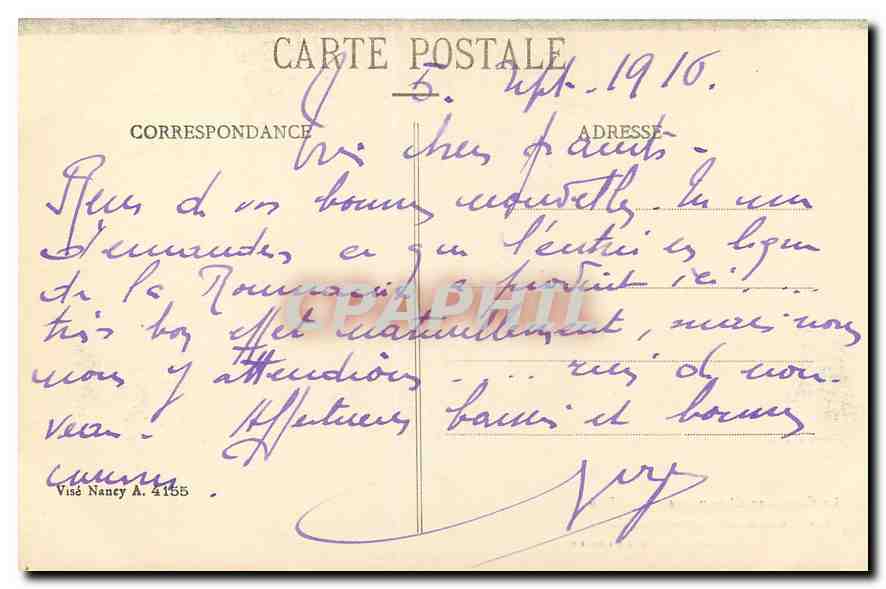 CARTE POSTALE
5. Sept. 1916.
CORRESPONDANCE
ADRESSE
chers parents -
Reçu de vos bonnes nouvelles. Tu me
demandes ce que l'entrée en ligne
de la Roumanie a produit ici? ...
CPAPHIL
très bon effet naturellement, mais nous
nous y attendions ... rien de nou-
veau. Affectueux baisers et bonnes
caresses.
Visé Nancy A. 4155